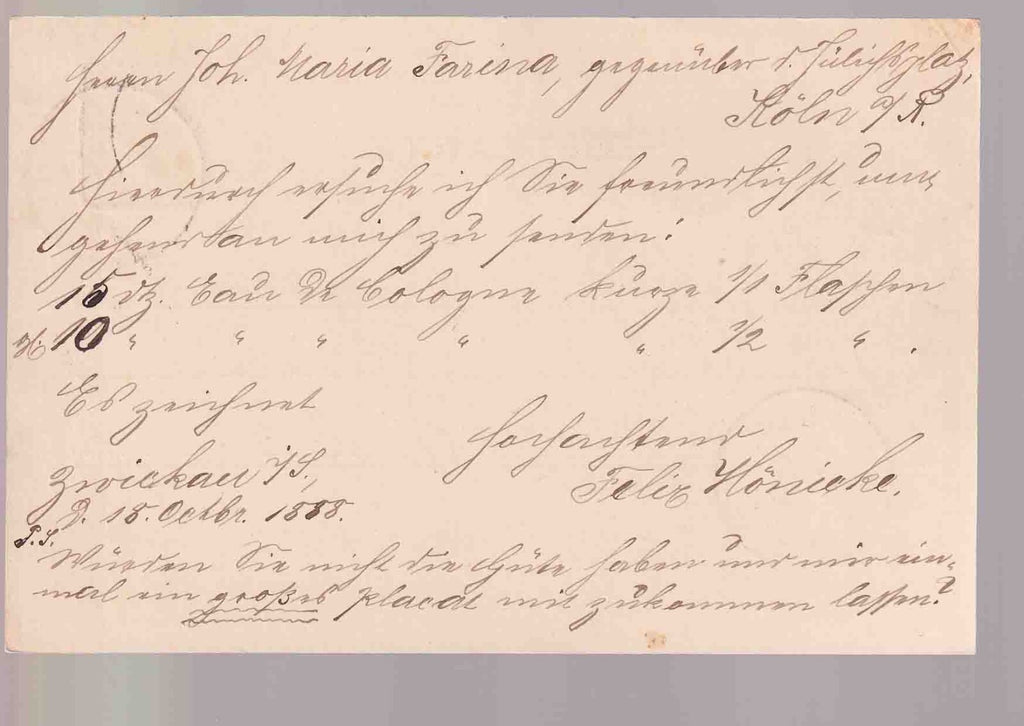 Herrn Joh. Maria Farina, gegenüber d. Jülichsplatz,
Köln a/R.
Hierdurch ersuche ich Sie freundlichst, um-
gehend an mich zu senden:
15 dtz. Eau de Cologne kurze 1/1 Flaschen
10 " " " " " 1/2 " .
Es zeichnet
Hochachtend
Zwickau i/S.,
Felix Hönicke.
D. 18. Octbr. 1888.
P.S.
Würden Sie nicht die Güte haben und mir ein-
mal ein großes Placat mit zukommen lassen?